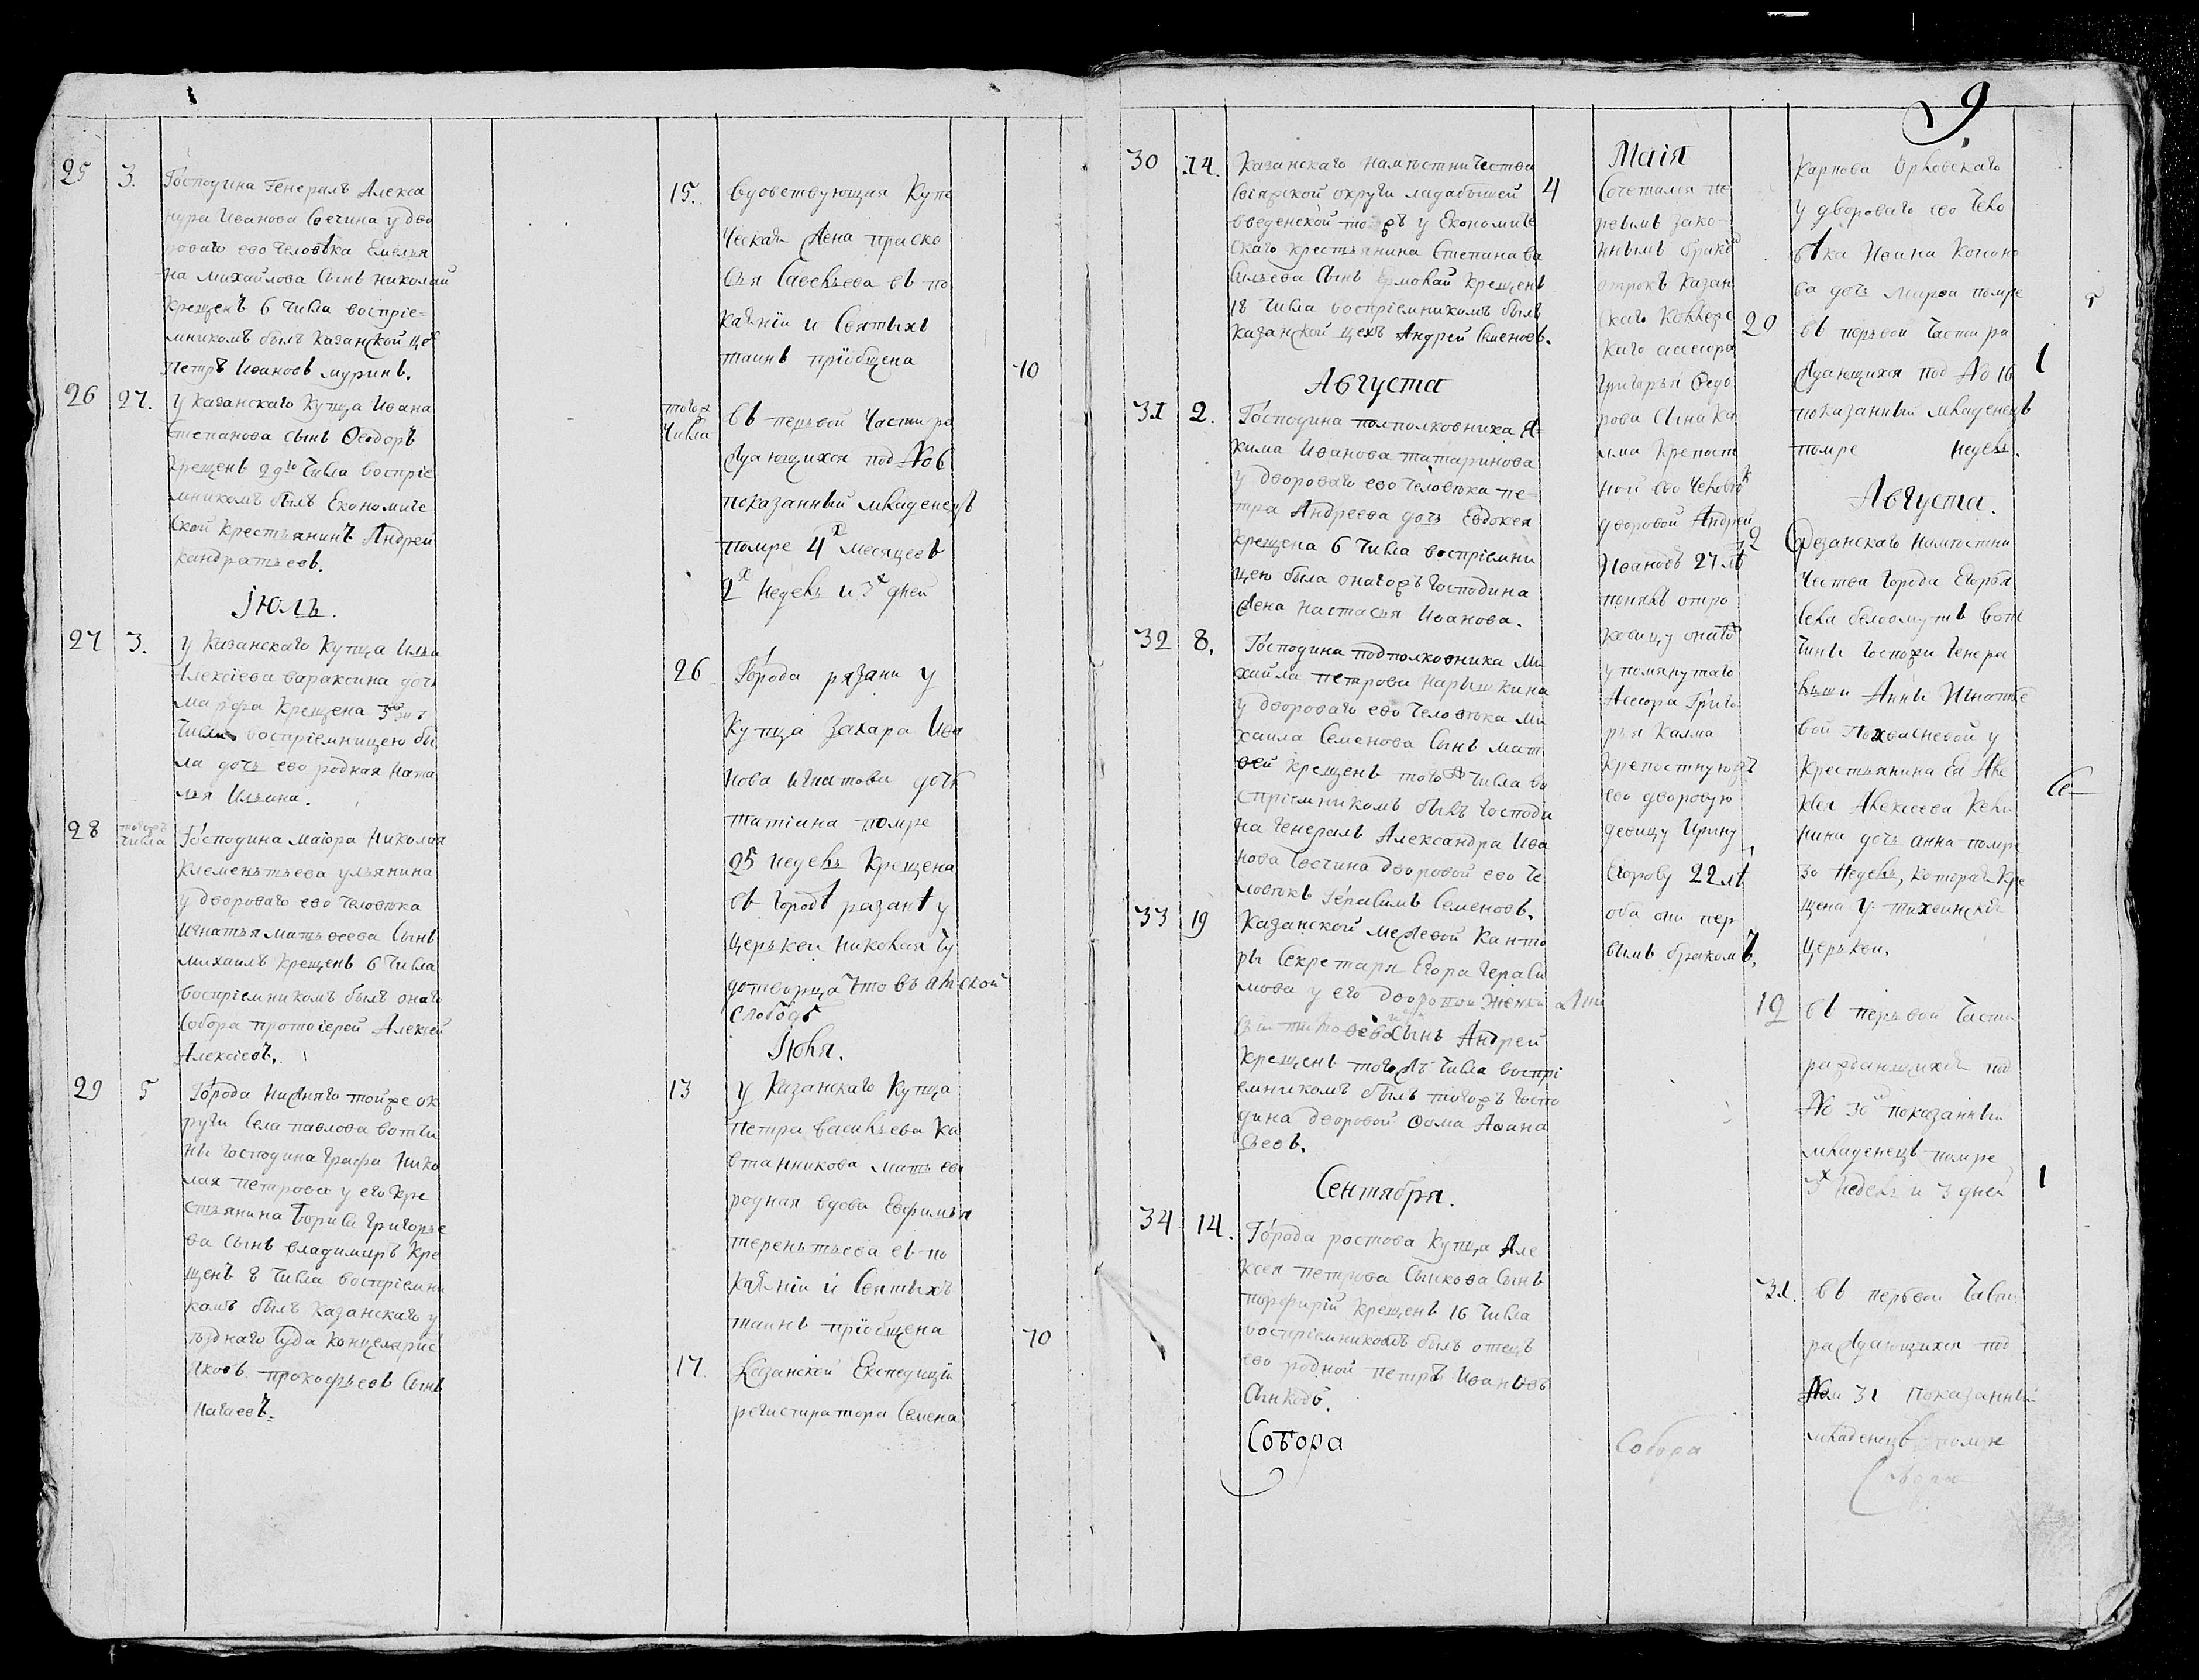 25 3. Господина Генералъ Алекса
ндра Иванова Свечина у дво
роваго ево человѣка Емелья
на Михайлова сынъ Николай
крещенъ 6 числа воспріе-
мникомъ былъ Казанской цех
Петръ Ивановъ Муринъ.
26 27. У Казанскаго купца Ивана
Степанова сынъ Ѳеодоръ
крещенъ 29го числа воспріе
мникомъ былъ Економиче
ской крестьянинъ Андреи
Кандратьевъ.
Іюль.
27 3. У Казанскаго купца Ильи
Алексіева Вараксина дочь
Марфа крещена
числа воспріемницею бы
ла дочь ево родная Ната
лья Ильина.
28 тогожъ числа Господина маіора Николая
Клеменьтьева Ульянина
у двороваго ево человѣка
Игнатья Матьвеева сынъ
Михаилъ крещенъ 6 числа
воспріемникомъ былъ онаго
собора протоіерей Алексей
Алексіевъ.
29 5 Города Нижняго той же ок
руги села Павлова вотчи
ны Господина Графа Нико
лая Петрова у его кре
стьянина Бориса Григорье
ва сынъ Владимиръ кре
щенъ 8 числа воспріемни
комъ былъ Казанскаго у
ѣзднаго суда концелярис
Яковъ Прокофьевъ сынъ
Нагаевъ.
15. Вдовствующая купе
ческая жена Праско
вья Савельева въ по
каяніи и святыхъ
таинъ пріобщена 70
тогож числа въ первой части ра
ждающихся под № 6
показанный младенецъ
помре 4х месяцеевъ
2х недель и 3х дней
26 Города Рязани у
купца Захара Ива
нова Игнатова дочь
Татіана помре
25 недель крещена
въ городѣ разанѣ у
церькви Николая Чу
дотворца что въ
слободѣ
Іюня.
13 У Казанскаго купца
Петра Васильева Ка
втанникова мать ево
родная вдова Евфимья
Тереньтьева въ по
каяніи и святыхъ
таинъ пріобщена 70
17. Казанской Експедиціи
регистиратора Семена
9
30 14. Казанскаго наместничества
Свіяжской округи
введенской тожъ у Економиче
скаго крестьянина Степана Ва
сильева сынъ Ермолай крещенъ
18 числа воспріемникомъ былъ
казанской цехъ Андрей Семеновъ.
Августа
31 2. Господина подполковника Я-
кима Иванова Татаринова
у двороваго ево человѣка Пе-
тра Андреева дочь Евдокея
крещена 6 числа воспріемни
цею была оногожъ господина
жена Настасья Иванова.
32 8. Господина подполковника Ми
хайла Петрова Нарышкина
у двороваго ево человѣка Ми
хаила Семенова сынъ Мат
вей крещенъ того ж числа во
спріемникомъ былъ господи
на Генералъ Александра Ива
нова Свечина дворовой ево че
ловѣкъ Герасимъ Семеновъ.
33 19 Казанской межевой канто
ры секретаря Егора Гераси
мова у его дворовой женки
сынъ Андрей
крещенъ тогожъ числа воспрі
емникомъ былъ тогожъ госпо
дина дворовой Ѳома Аѳана
сьевъ.
Сентября.
34 14. Города Ростова купца Але
ксея Петрова Сынкова сынъ
Порфирій крещенъ 16 числа
воспріемникомъ былъ отецъ
ево родной Петръ Ивановъ
Сынковъ.
Собора
Маія
4 Сочетался пе
рвымъ зако
ннымъ бракъ
отрокъ Казан
скаго коллеж
каго ассесора
Григорья Ѳедо
рова сына Ка
лма крепост
ной ево человѣк
дворовой Андрей
Ивановъ 27 лѣ
понялъ отро
ковицу онаго
упомянутаго
Асесора Григо
рья Калма
крепостную жъ
ево дворовую
девицу Ирину
Егорову 22 лѣ
оба они пер
вымъ бракомъ.
Собора
Карпова Орловскаго
у двороваго ево чело
вѣка Ивана Конано
ва дочь Марѳа помре
20 въ первой части ра
ждающихся под № 16 1
показанный младенецъ
помре недель.
Августа.
Резанскаго Наместни
чества города Егорья
села Белоомутъ вотч
чины госпожи Генера
льши Анны Игнатье
вой у
крестьянина ея Але
ксея Алексеева
дочь Анна помре
30 недель, которая кре
щена у тихвинскія
церькви.
19 въ первой части
раждающихся под
№ 30 показанный
младенецъ помре
5х недель и 3 дней 1
31. въ первой части
раждающихся под
31 показанный
младенецъ помре
Собора